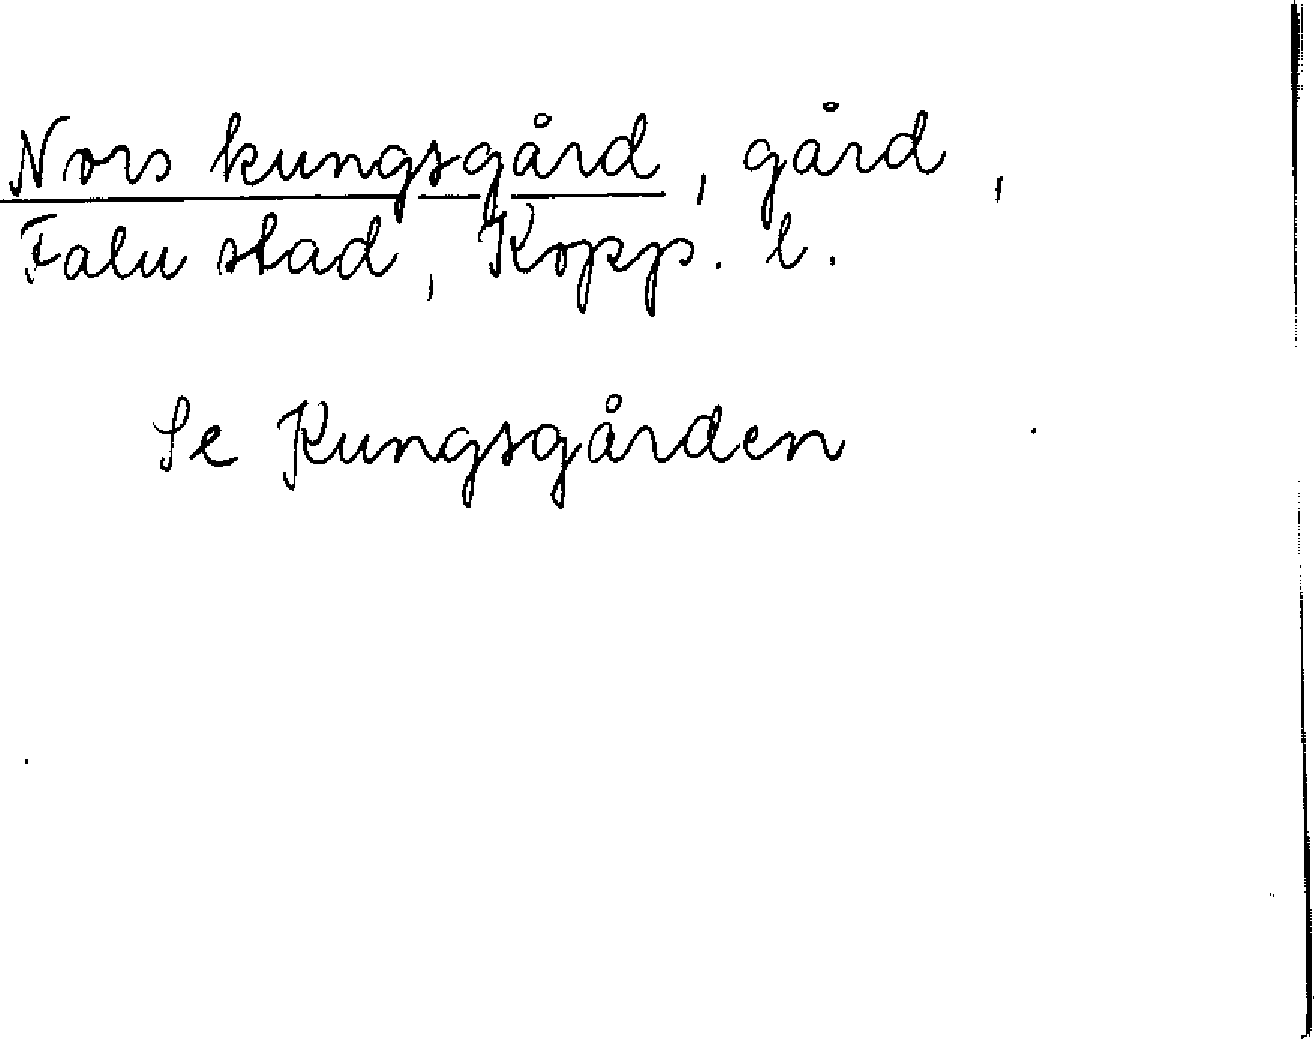 Nors kungsgård, gård,
Falu stad, Kopp. l.
Se Kungsgården